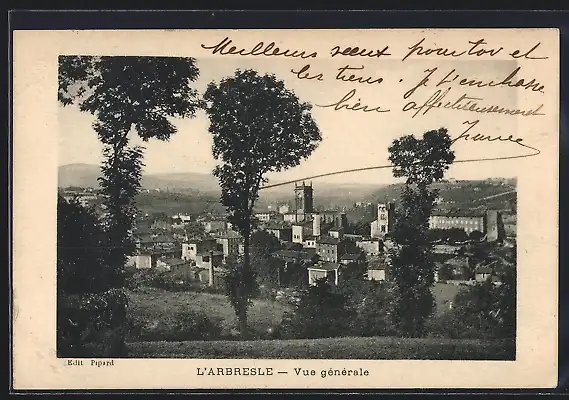 Meilleurs vœux pour toi et
les tiens. Je t'embrasse
bien affectueusement
France
Edit Pipard
L'ARBRESLE — Vue générale